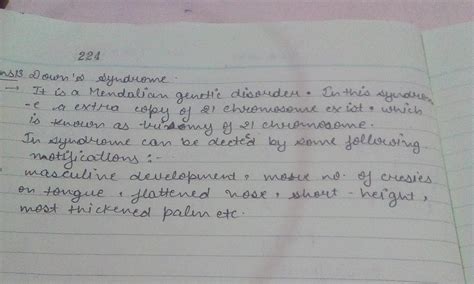 224
Ans13. Down's syndrome.
→ It is a Mendalian genetic disorder. In this syndrom
-e a extra copy of 21 chromosome exist. which
is known as trisomy of 21 chromosome.
In syndrome can be dected by some following
motifications :-
masculine development, more no. of cresies
on tongue, flattened nose, short-height,
most thickened palm etc.